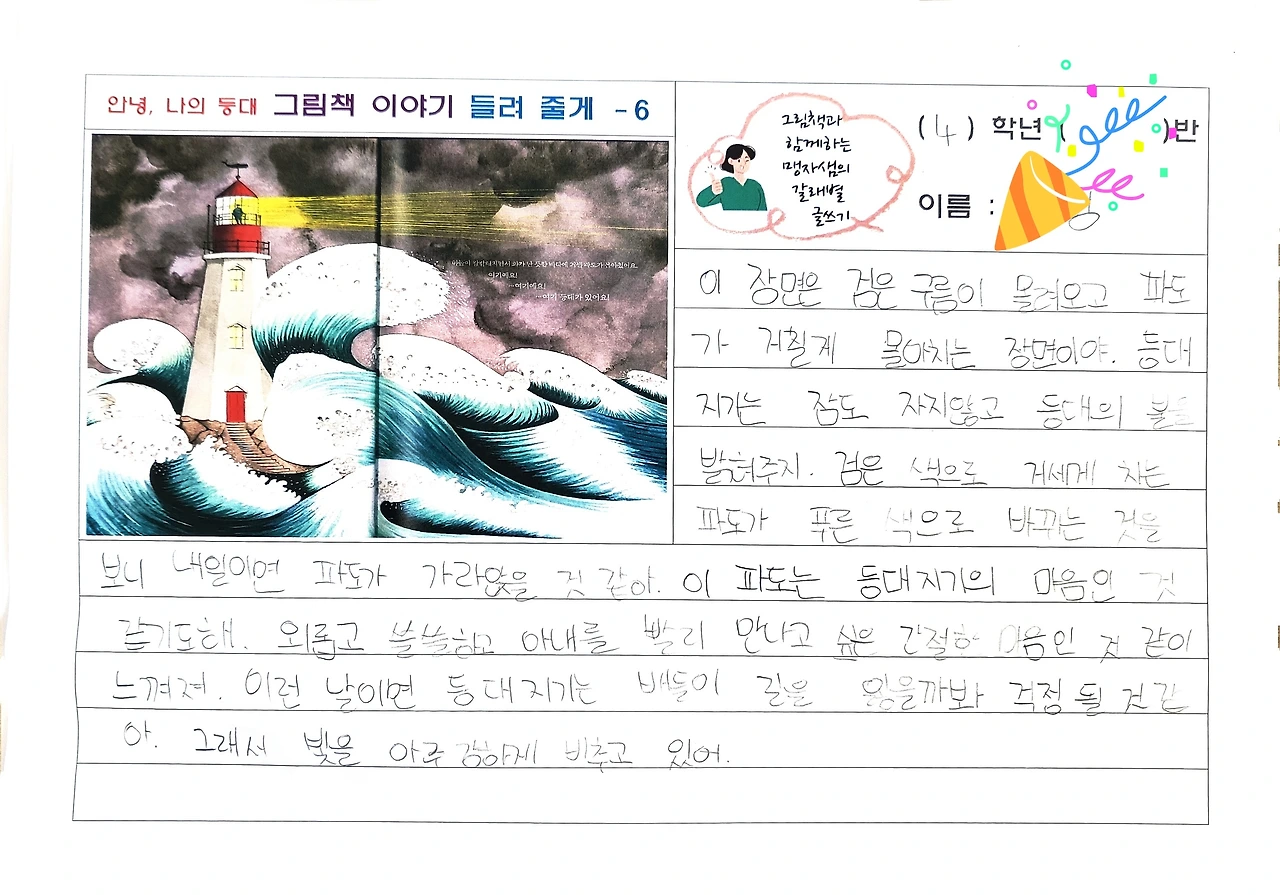 안녕, 나의 등대 그림책 이야기 들려 줄게 - 6
그림책과
함께하는
맹자샘의
갈래별
글쓰기
( 4 ) 학년 ( )반
이름 :
여기예요!
…여기예요!
…여기 등대가 있어요!
이 장면은 검은 구름이 몰려오고 파도
가 거칠게 몰아치는 장면이야. 등대
지기는 잠도 자지않고 등대의 불을
밝혀주지. 검은 색으로 거세게 치는
파도가 푸른 색으로 바뀌는 것을
보니 내일이면 파도가 가라앉을 것 같아. 이 파도는 등대지기의 마음인 것
같기도해. 외롭고 쓸쓸하고 아내를 빨리 만나고 싶은 간절한 마음인 것 같이
느껴져. 이런 날이면 등대지기는 배들이 길을 잃을까봐 걱정 될 것 같
아. 그래서 빛을 아주 강하게 비추고 있어.